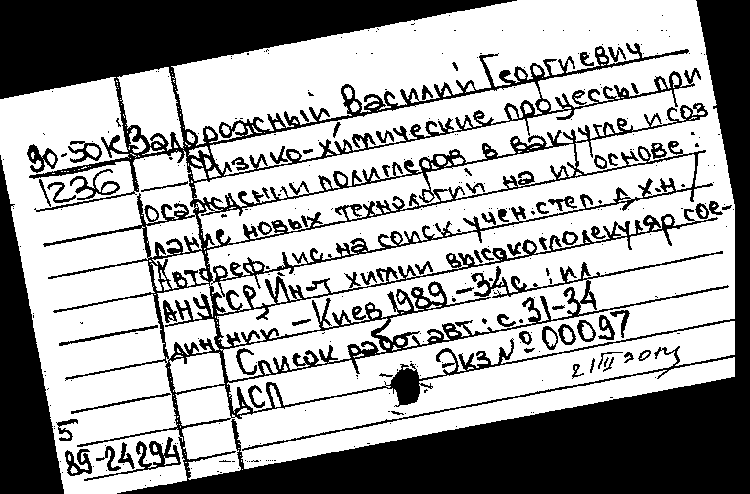 90-50К Задорожный Василий Георгиевич
1236 Физико-химические процессы при
осаждении полимеров в вакууме и соз-
дание новых технологий на их основе:
Автореф. дис. на соиск. учен. степ. д.х.н. /
АН УССР, Ин-т химии высокомолекуляр. сое-
динений. – Киев, 1989. – 34с. : ил.
Список работ авт.: с. 31-34
ДСП Экз. № 00097
5
89-24294